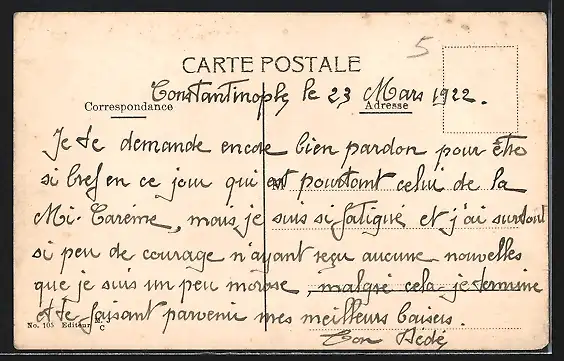 5
CARTE POSTALE
Constantinople, le 23 Mars 1922.
Correspondance
Adresse
Je te demande encore bien pardon pour être
si bref en ce jour qui est pourtant celui de la
Mi-Carême, mais je suis si fatigué et j'ai surtout
si peu de courage n'ayant reçu aucune nouvelles
que je suis un peu morose, malgré cela je termine
et te faisant parvenir mes meilleurs baisers.
Ton Dédé
No. 105 Editeur M. C